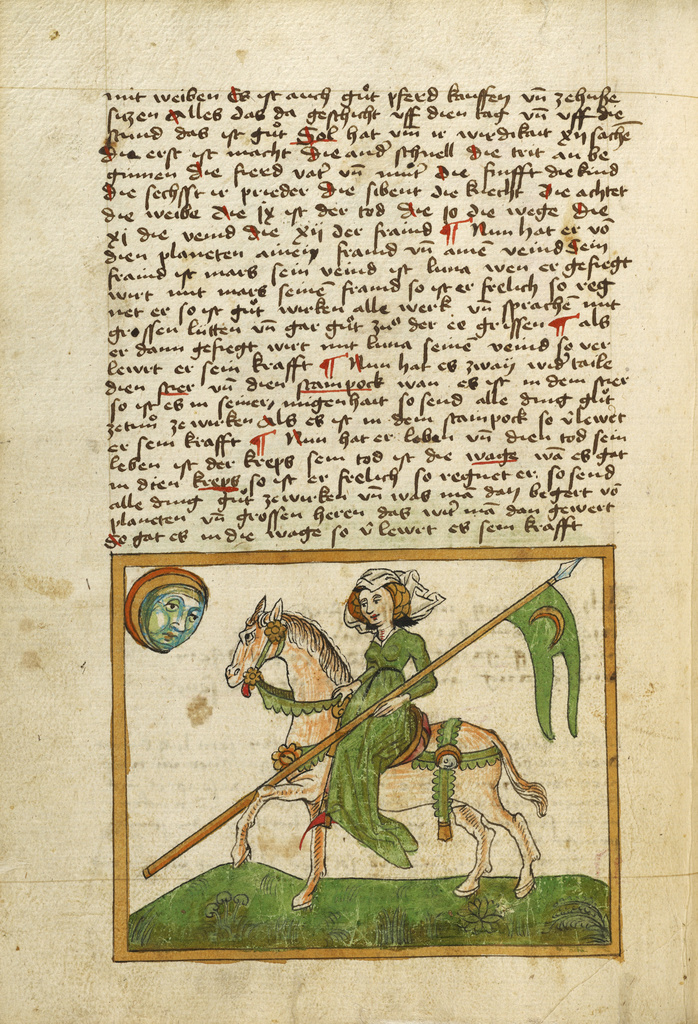 mit weiben Es ist auch gůt pferd kauffen vn̄ ze huße
sitzen Alles das da geschicht vff dien tag vn̄ vff die
stund das ist gůt Sol hat vm̄ ir wirdikait xii sachē
die erst ist macht Die and' schnell Die trit an be
ginnen Die fierd vat' vn̄ můt' Die finfft die kind
Die sechsst ir prieder Die sibent die knecht Die achtet
die weibe Die ix ist der tod Die 10 die wege Die
xi die veind Die xii der fraind ¶ Nun hat er vō
dien planeten ainen fraind vn̄ ainē veind Sein
fraind ist mars sein veind ist luna wen er gefiegt
wirt mit mars seinē fraind so ist er frelich so reg
net er so ist gůt wirken alle werk vn̄ sprachen mit
grossen lütten vn̄ gar gůt der es grissen ¶ als
er dann gefiegt wirt mit luna seinē veind so ver
lewrt er sein krafft ¶ Nun hat es zwaij wid'taile
dien stier vn̄ dien stainpock wan es ist in dem stier
so ist es in seiner mugenhait so send alle ding gůt
zetun̄ ze wirken Als es ist in dem stainpock so v'lewrt
er sein krafft ¶ Nun hat er leben vn̄ dien tod sein
leben ist der kreps sein tod ist die wage wā es gat
in dien kreps so ist er frelich so regnet er so send
alle ding gůt ze wirken vn̄ was mā dan begert vō
planeten vn̄ grossen heren das wirt mā dan gewert
So gat es in die wage so v'lewrt es sein krafft